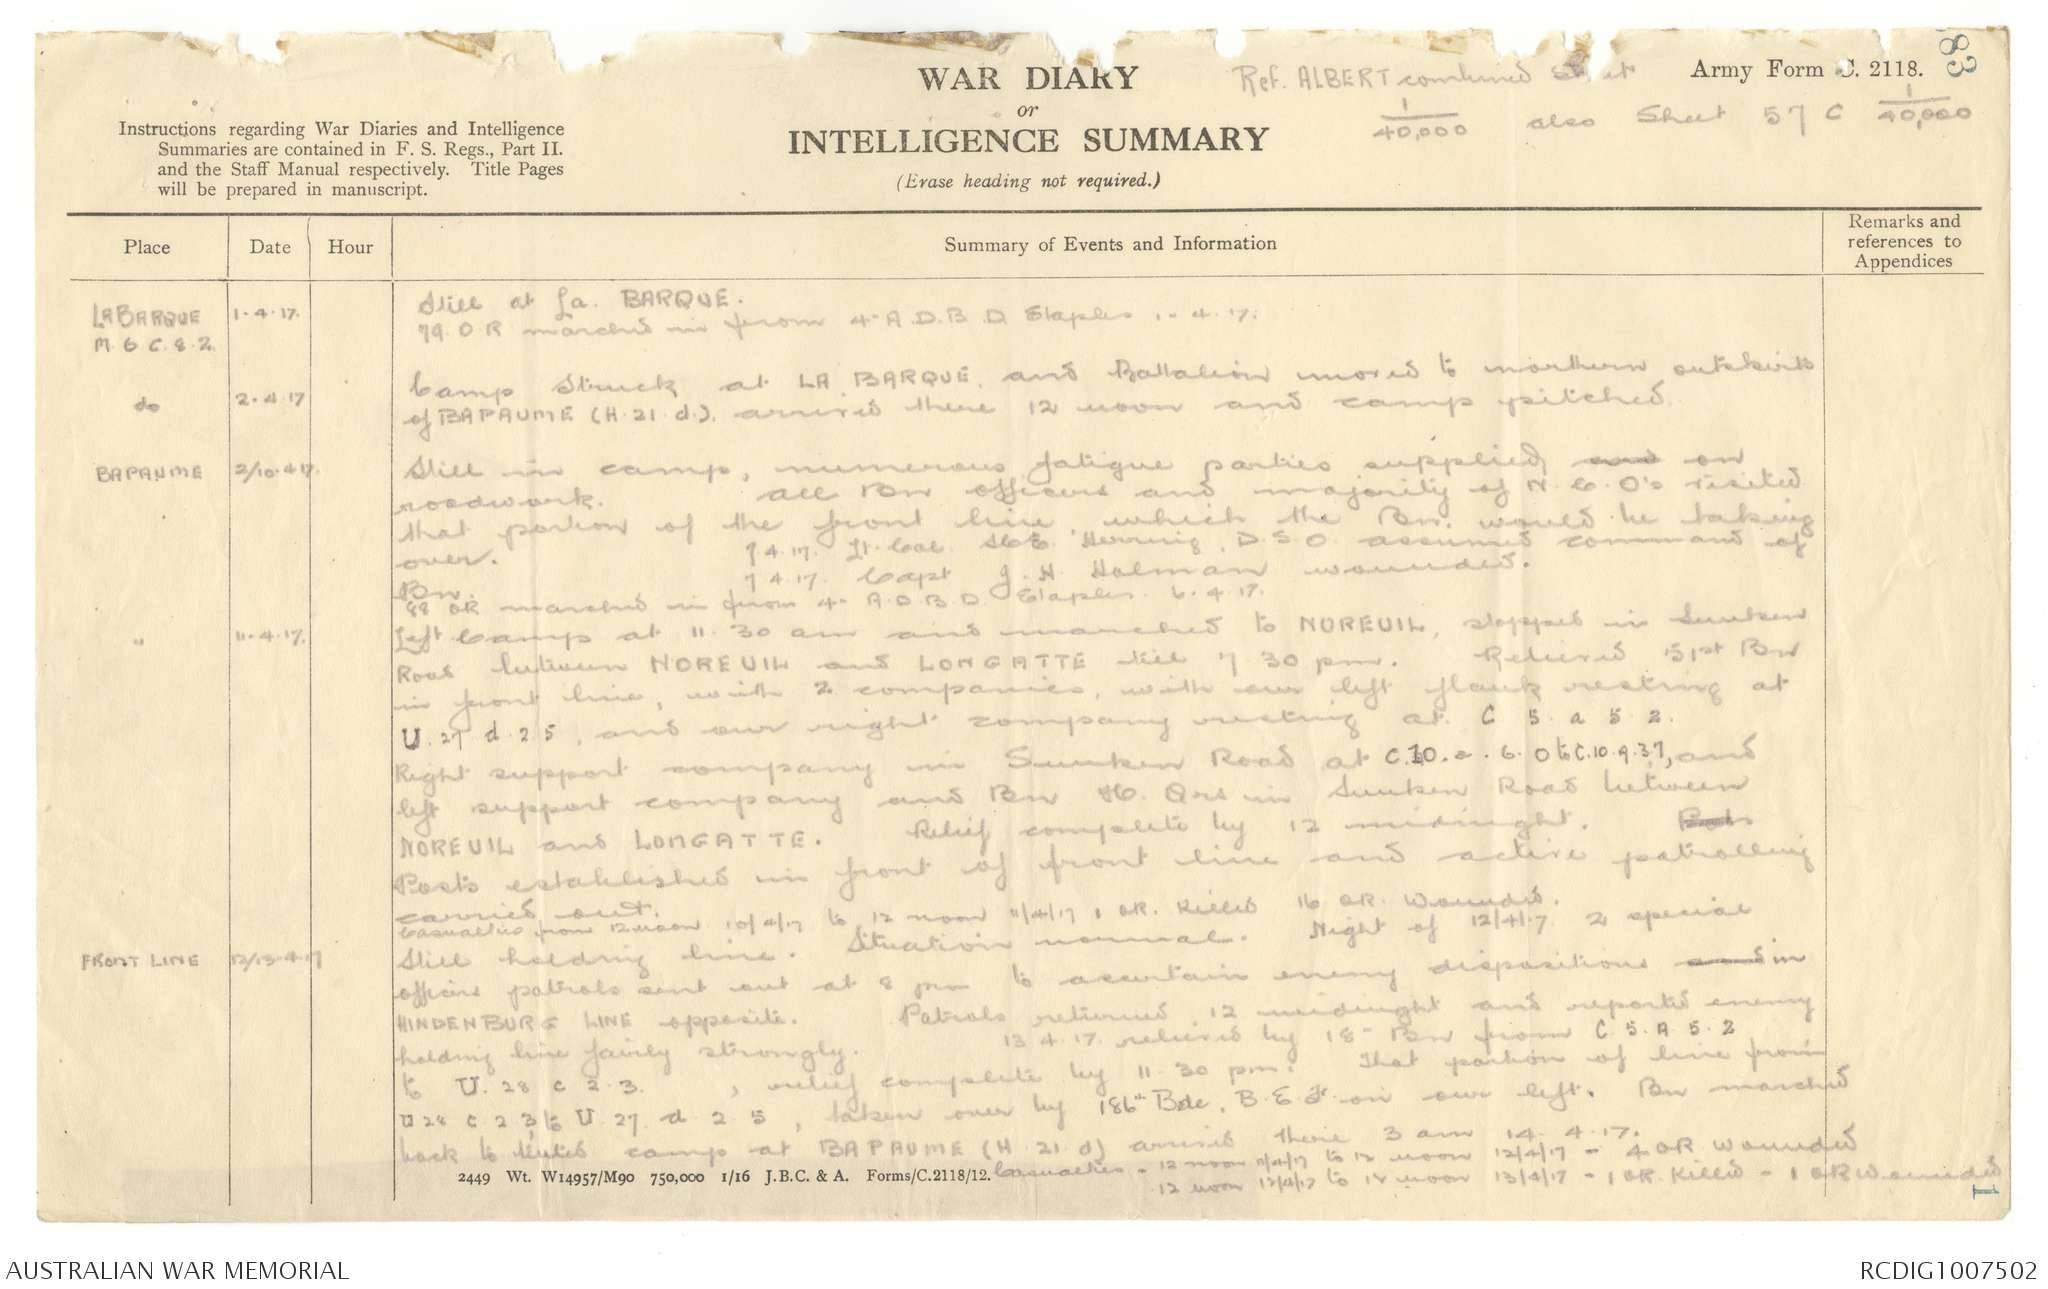 WAR DIARY
or
INTELLIGENCE SUMMARY
(Erase heading not required.)
Ref. ALBERT combined Sheet
1/40,000 also Sheet 57 C 1/40,000
Army Form C. 2118.
83
Instructions regarding War Diaries and Intelligence
Summaries are contained in F. S. Regs., Part II.
and the Staff Manual respectively. Title Pages
will be prepared in manuscript.
Place
Date
Hour
Summary of Events and Information
Remarks and
references to
Appendices
LA BARQUE 1.4.17. Still at La. BARQUE.
M. 6 C. 8. 2. 79. O R marched in from 4th A.D.B.D. Etaples 1.4.17.
do 2.4.17 Camp struck at LA BARQUE, and Battalion moved to northern outskirts
of BAPAUME (H.21.d.). arrived there 12 noon and camp pitched.
BAPAUME 2/10.4.17. Still in camp, numerous fatigue parties supplied and on
roadwork. All Bn officers and majority of N.C.O's visited
that portion of the front line, which the Bn. would be taking
over. 7.4.17. Lt. Col. S.C.E. Herring, D.S.O. assumed command of
Bn. 7.4.17. Capt J. H. Holman wounded.
88 OR marched in from 4th A.D.B.D. Etaples. 6.4.17.
" 11.4.17. Left Camp at 11.30 am and marched to NOREUIL, stopped in Sunken
Road between NOREUIL and LONGATTE till 7 30 pm. Relieved 51st Bn
in front line, with 2 companies, with our left flank resting at
U.27 d.2 5, and our right company resting at C 5. a 5 2.
Right support company in Sunken Road at C.10.a.6.0 to C.10.a.3.7, and
left support company and Bn H. Qrs in Sunken Road between
NOREUIL and LONGATTE. Relief complete by 12 midnight.
Posts established in front of front line and active patrolling
carried out.
Casualties from 12 noon 10/4/17 to 12 noon 11/4/17 1 OR. Killed 16 OR. Wounded.
FRONT LINE 12/13.4.17 Still holding line. Situation normal. Night of 12/4/17 2 special
officers patrols sent out at 8 pm to ascertain enemy dispositions in
HINDENBURG LINE opposite. Patrols returned 12 midnight and reported enemy
holding line fairly strongly. 13.4.17. relieved by 18th Bn from C 5. A 5.2
to U. 28 c 2.3. , relief complete by 11.30 pm. That portion of line from
U 28 c 2 3, to U. 27. d 2 5, taken over by 186th Bde, B.E.F. on our left. Bn marched
back to tented camp at BAPAUME (H.21.d) arrived there 3 am 14.4.17.
Casualties - 12 noon 11/4/17 to 12 noon 12/4/17 - 4 OR Wounded
12 noon 12/4/17 to 12 noon 13/4/17 - 1 OR. Killed - 1 OR Wounded
2449 Wt. W14957/M90 750,000 1/16 J.B.C. & A. Forms/C.2118/12.
AUSTRALIAN WAR MEMORIAL
RCDIG1007502